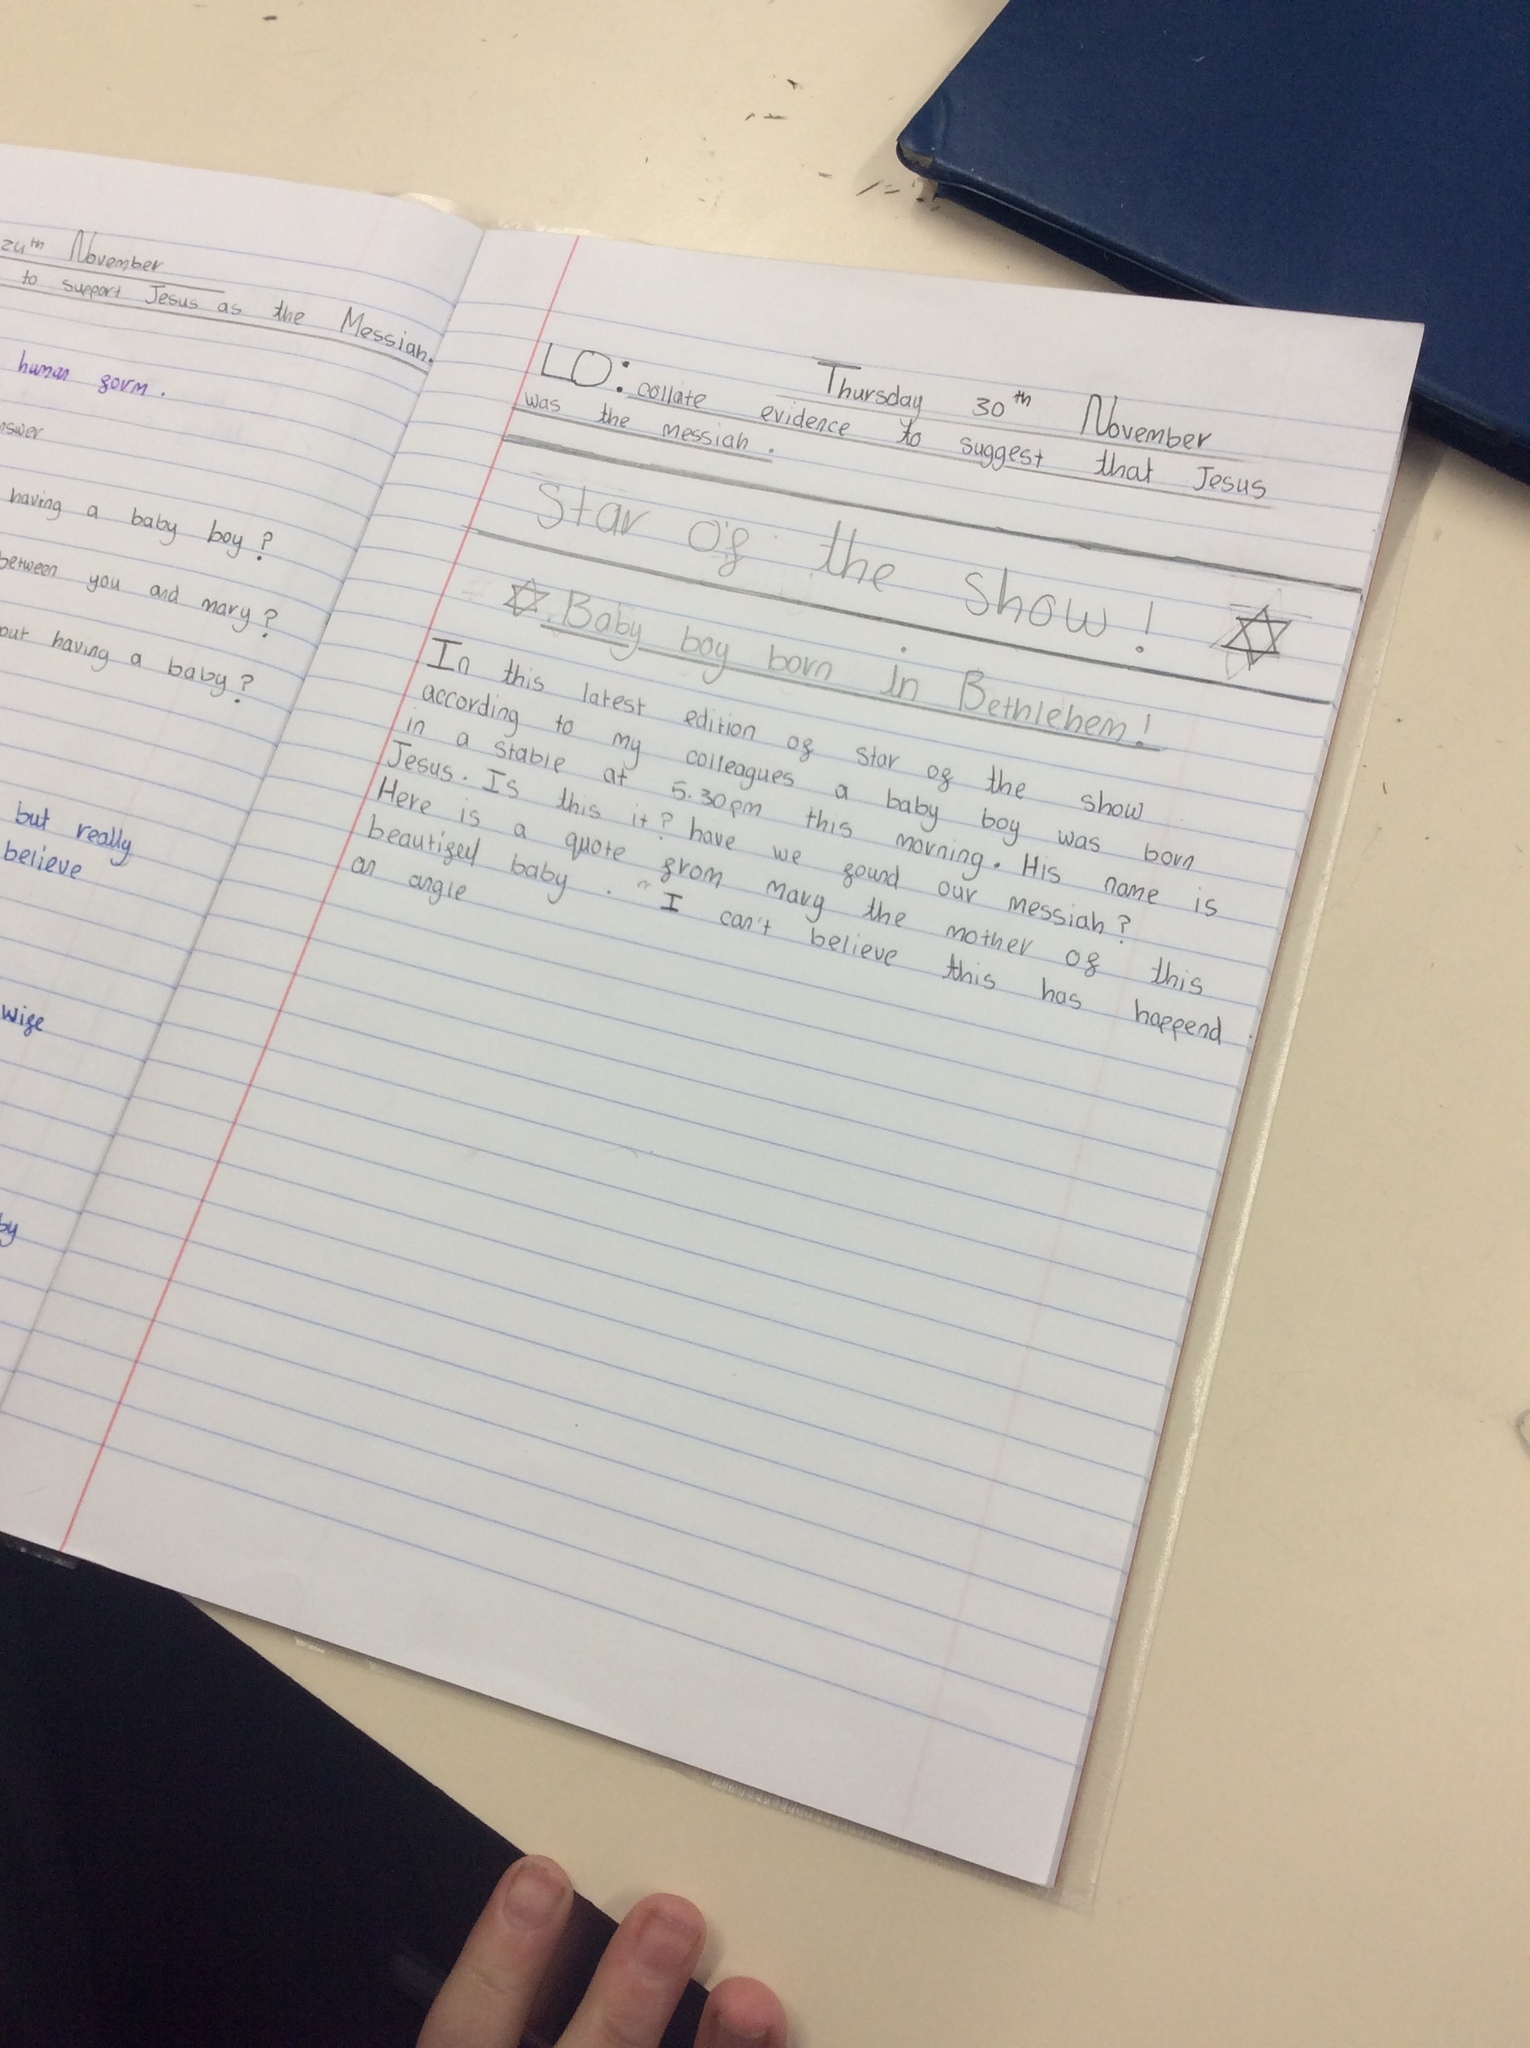 24th November
to support Jesus as the Messiah.
human form.
having a baby boy?
between you and mary?
having a baby?
but really
believe
Thursday 30th November
LO: collate evidence to suggest that Jesus
was the messiah.
Star of the show!
Baby boy born in Bethlehem!
In this latest edition of star of the show
according to my colleagues a baby boy was born
in a stable at 5.30pm this morning. His name is
Jesus. Is this it? have we found our messiah?
Here is a quote from mary the mother of this
beautiful baby. "I can't believe this has happend.
an angle